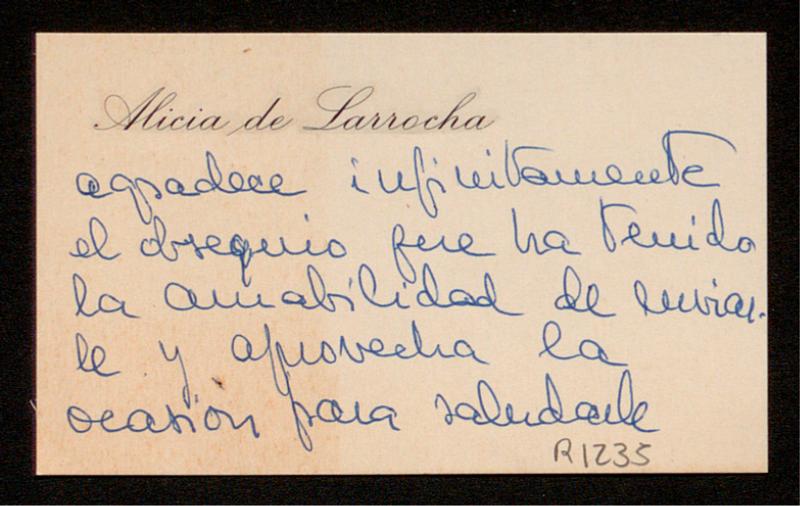 Alicia de Larrocha
agradece infinitamente
el obsequio que ha tenido
la amabilidad de enviar-
le y aprovecha la
ocasión para saludarle
R1235